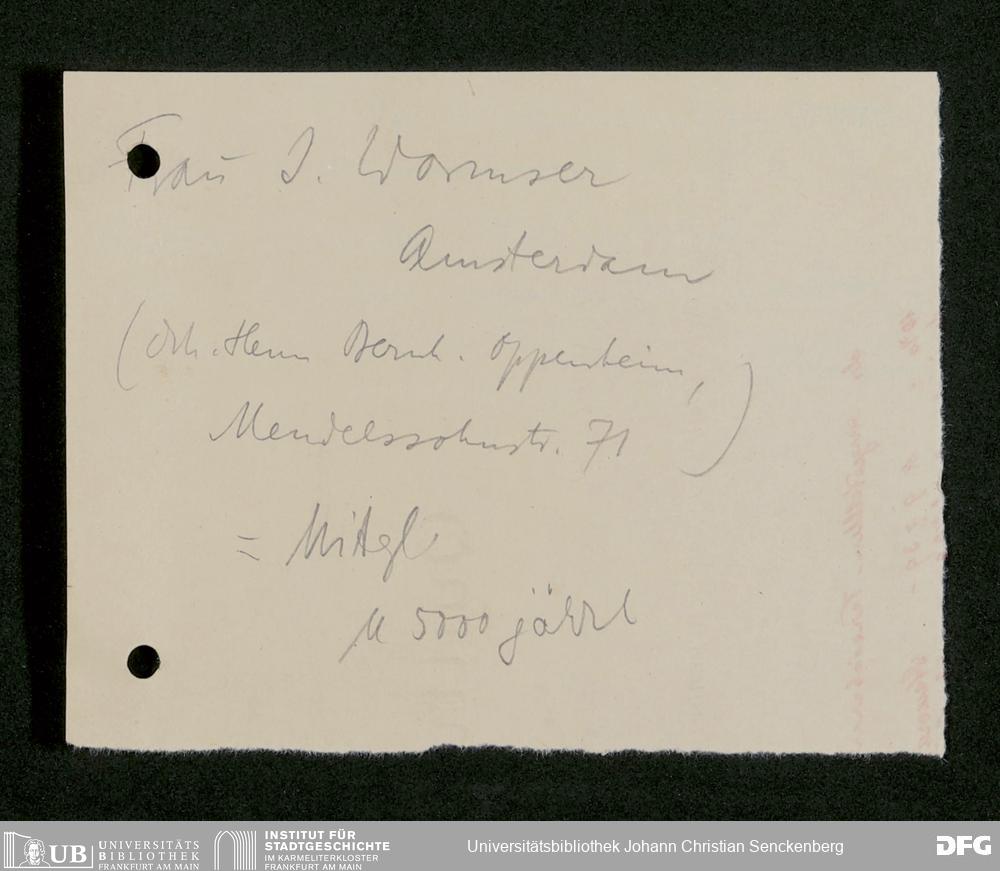 Frau J. Wormser
Amsterdam
(dch. Herrn Bernh. Oppenheim,
Mendelssohnstr. 71)
= Mitgl
M 5000 jährl
UB UNIVERSITÄTS
BIBLIOTHEK
FRANKFURT AM MAIN
INSTITUT FÜR
STADTGESCHICHTE
IM KARMELITERKLOSTER
FRANKFURT AM MAIN
Universitätsbibliothek Johann Christian Senckenberg
DFG